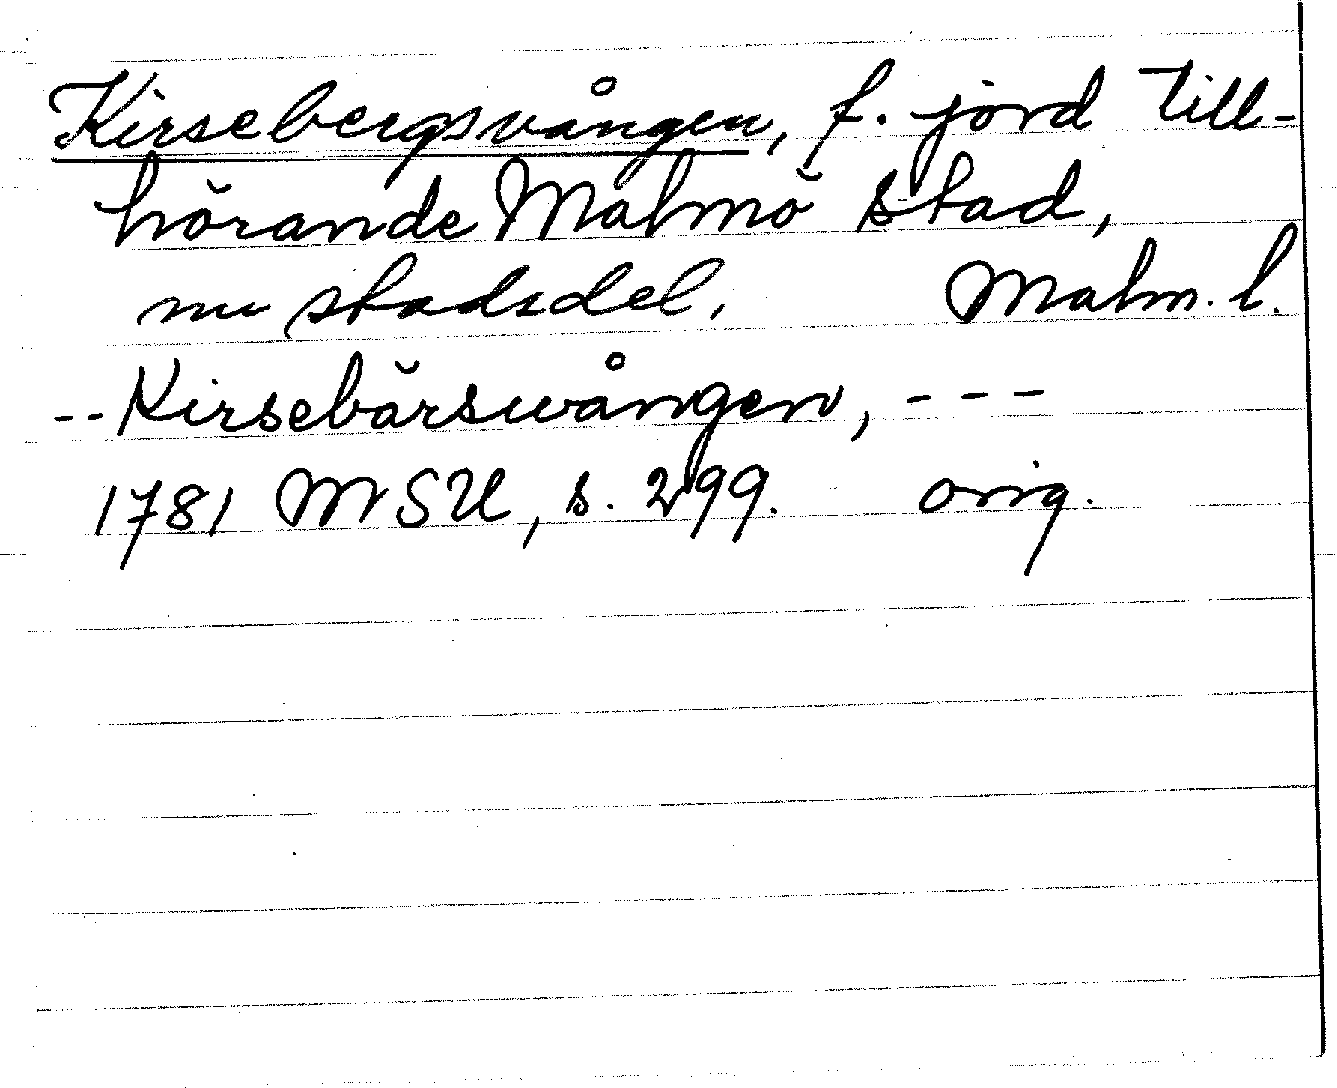 Kirsebergsvången, f. jord till-
hörande Malmö stad,
nu stadsdel. Malm. l.
-- Kirsebärswången, ---
1781 MSU, s. 299. orig.